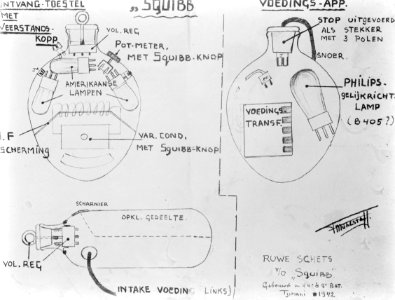 ONTVANG-TOESTEL
MET
WEERSTANDS-
KOPP.
"SQUIBB
VOEDINGS-APP.
VOL. REG
POT-METER,
MET SQUIBB-KNOP
AMERIKAANSE
LAMPEN
STOP UITGEVOERD
ALS STEKKER
MET 3 POLEN
SNOER.
PHILIPS-
GELIJKRICHT
LAMP
(B 405?)
VOEDINGS-
TRANSF.
H.F
SCHERMING
VAR. COND,
MET SQUIBB-KNOP
SCHARNIER
OPKL. GEDEELTE.
VOL. REG
INTAKE VOEDING LINKS)
RUWE SCHETS
v/d „SQUIBB"
Gebouwd in
Tjimahi 1942